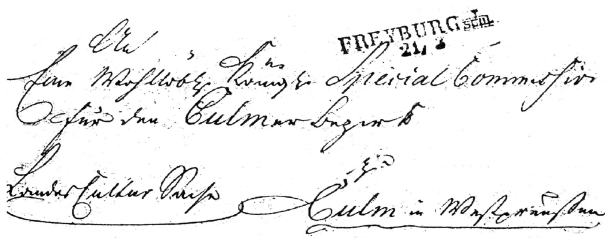 FREYBURG
21/2
An
Eine Wohllöbl. Königl. Special Commission
für den Culmer Bezirk
Landes Cultur Sache
Culm in Westpreußen